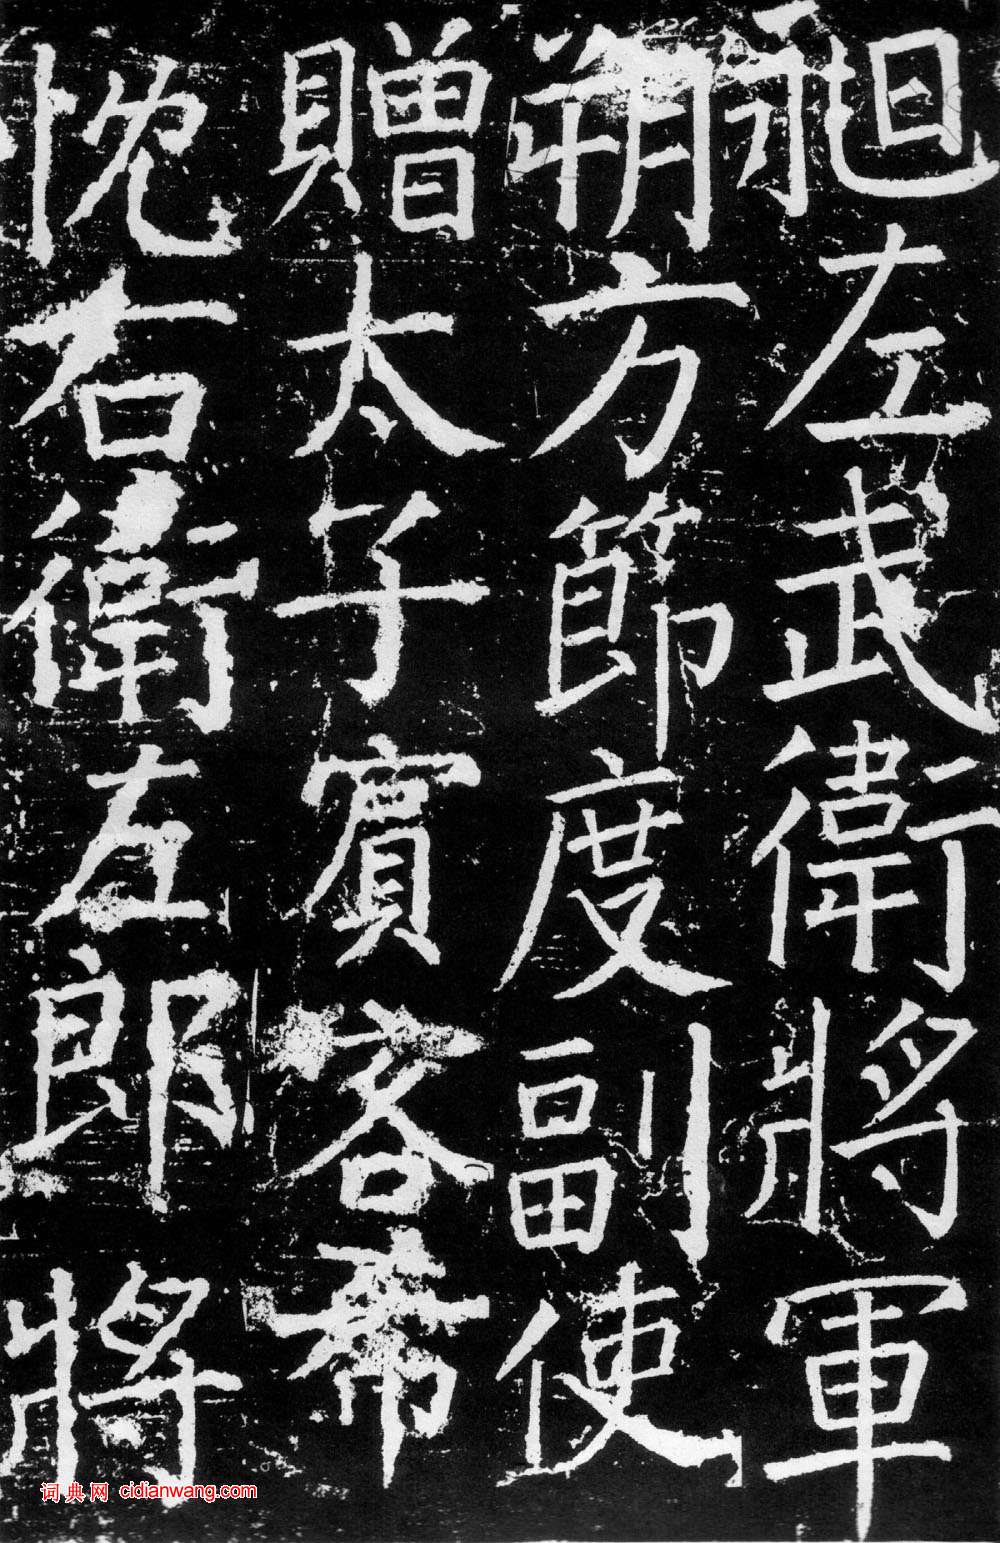 左武衛將軍
朔方節度副使
贈太子賓客希
忱右衛左郎將
词典网 cidianwang.com